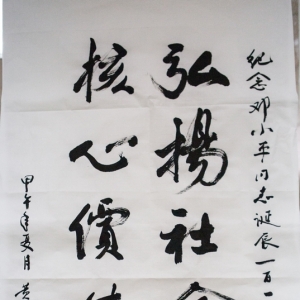 纪念邓小平同志诞辰一百一
弘揚社会
核心價值
甲午年夏月黄